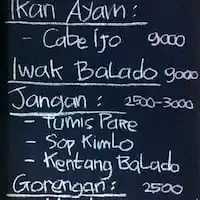 Ikan Ayam :
- Cabe Ijo 9000
Iwak Balado 9000
Jangan : 2500-3000
- Tumis Pare
- Sop Kimlo
- Kentang Balado
Gorengan : 2500